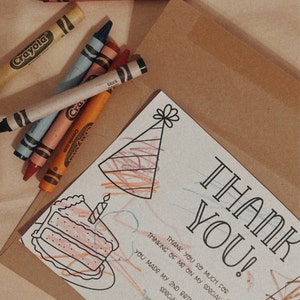 Crayola
THANK
YOU!
THANK YOU SO MUCH FOR
THINKING OF ME ON MY SPECIAL
YOU MADE MY 2ND